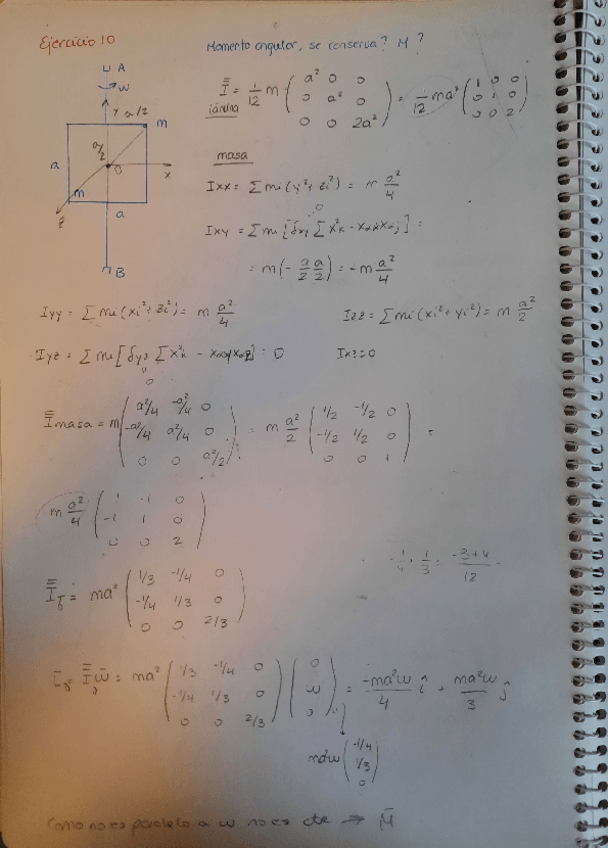 Ejercicio 10
Momento angular, se conserva? M̄?
A
ω
Y a/2
m
a/2
a
O
x
m
z
a
B
I̿ lámina = 1/12 m ( a² 0 0 ; 0 a² 0 ; 0 0 2a² ) = 1/12 ma² ( 1 0 0 ; 0 1 0 ; 0 0 2 )
masa
Ixx = Σ mi (y² + zi²) = m a²/4
0
Ixy = Σ mi [ δxy Σ x²k - xαi xαj ] =
= m(- a/2 a/2) = -m a²/4
Iyy = Σ mi (xi² + zi²) = m a²/4
Izz = Σ mi (xi² + yi²) = m a²/2
Iyz = Σ mi [ δyz Σ x²k - xαy xαz ] = 0
0
Ixz = 0
I̿ masa = m ( a²/4 -a²/4 0 ; -a²/4 a²/4 0 ; 0 0 a²/2 ) = m a²/2 ( 1/2 -1/2 0 ; -1/2 1/2 0 ; 0 0 1 ) =
m a²/4 ( 1 -1 0 ; -1 1 0 ; 0 0 2 )
-1/4 + 1/3 = -3+4/12
I̿ = ma² ( 1/3 -1/4 0 ; -1/4 1/3 0 ; 0 0 2/3 )
I̿ ω̄ = ma² ( 1/3 -1/4 0 ; -1/4 1/3 0 ; 0 0 2/3 ) ( 0 ; ω ; 0 ) = -ma²ω/4 î + ma²ω/3 ĵ
ma²ω ( -1/4 ; 1/3 ; 0 )
Como no es paralelo a ω no es cte → M̄